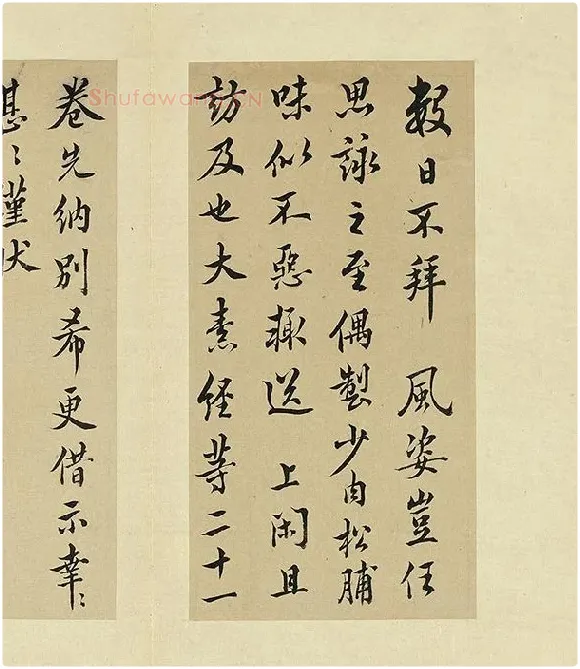 数日不拜 風姿豈任
思詠之至偶製少肉松脯
味似不惡輙送 上閑且
訪及也大素経等二十一
卷先納別希更借示幸〻
〻謹伏
Shufawang.CN